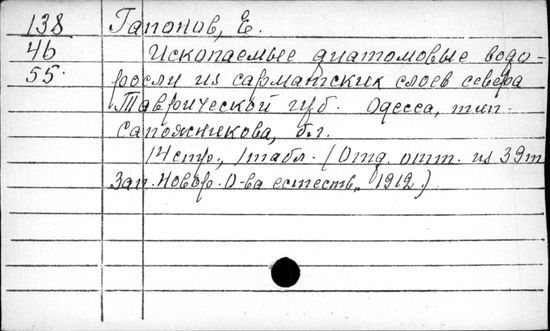 138 Гапонов, Е.
46 Ископаемые диатомовые водо-
55. росли из сарматских слоев севера
Таврической губ. Одесса, тип.
Сапожникова, б.г.
14 стр., 1 табл. (Отд. отт. из 39 т.
Зап. Новор. О-ва естеств., 1912.)